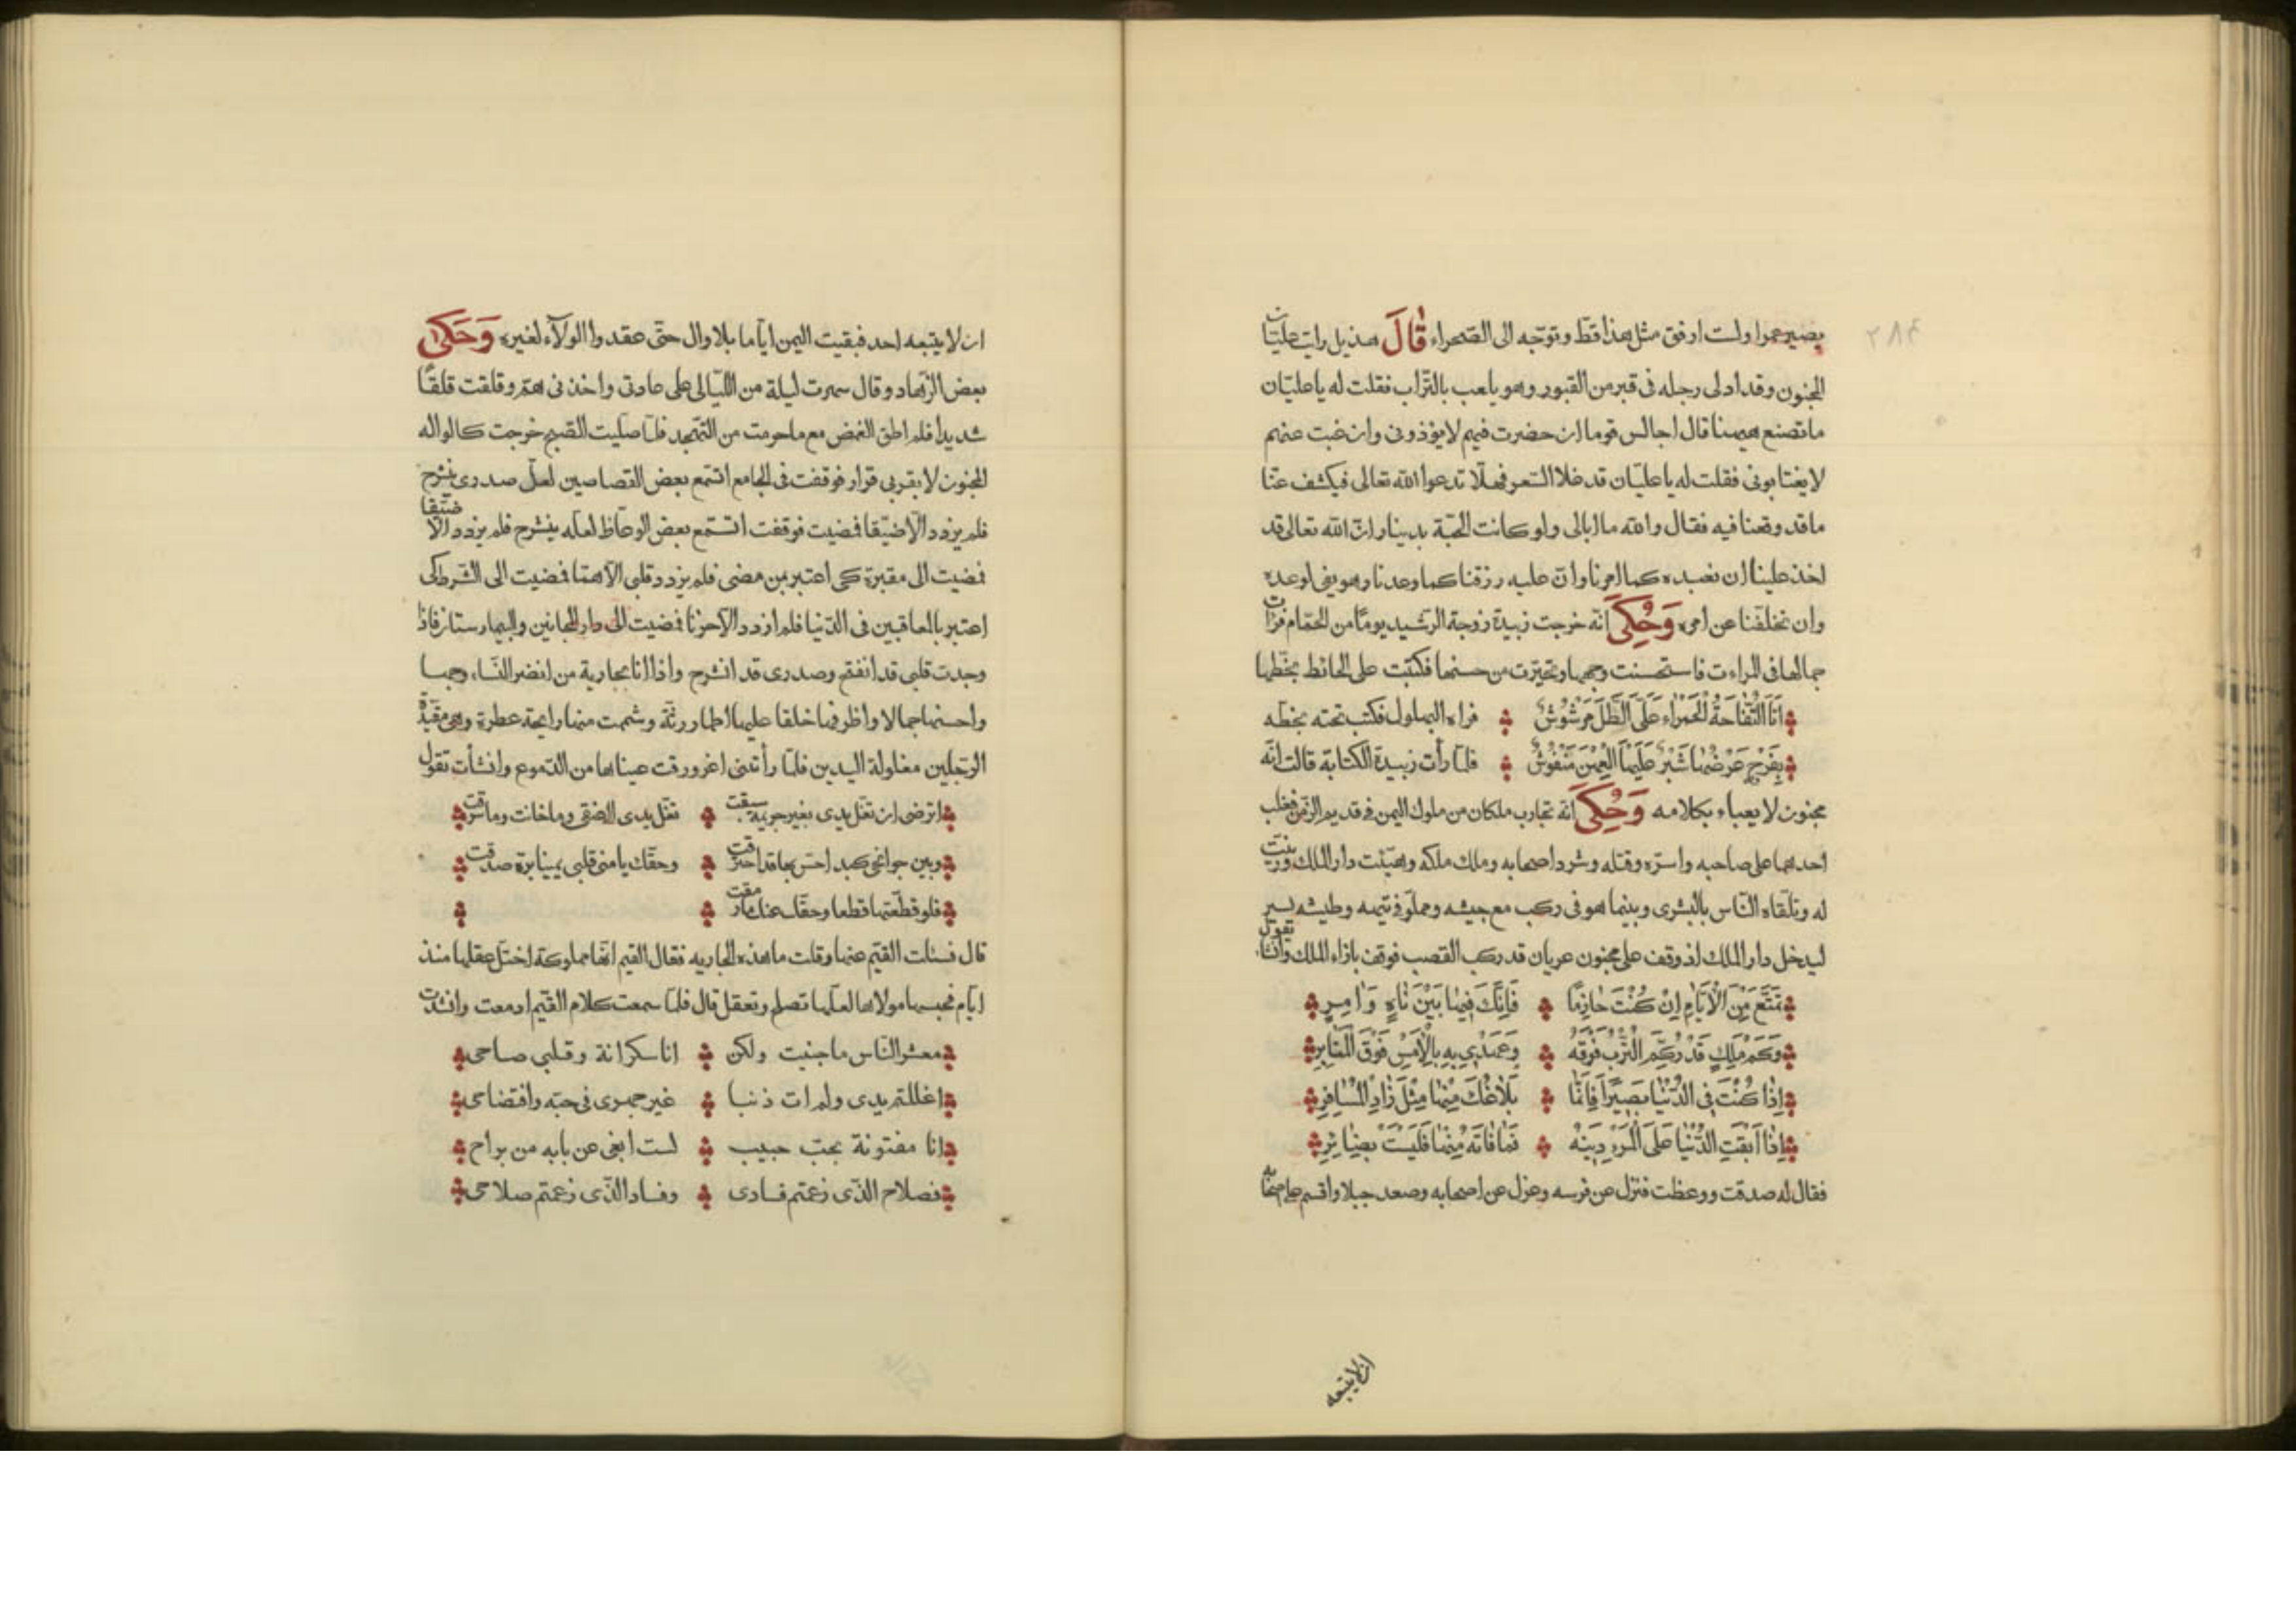 ٢٨٤
بصير عمرا ولست ارفق مثل هذا قط وتوجه الى الصحراء قَالَ هذيل رايت عليّان
المجنون وقد ادلى رجله فى قبر من القبور وهو يلعب بالتّراب فقلت له يا عليّان
ما تصنع هيهنا قال اجالس قوما ان حضرت فيهم لا يؤذونى وان غبت عنهم
لا يغتابونى فقلت له يا عليّان قد غلا السّعر فهلّا تدعوا الله تعالى فيكشف عنّا
ما قد وقعنا فيه فقال والله ما ابالى ولو كانت الحبّة بدينار انّ الله تعالى قد
اخذ علينا ان نعبده كما امرنا وانّ عليه رزقنا كما وعدنا وهو يفى لوعده
وان تخلّفنا عن امره وَحُكِىَ انّه خرجت زبيدة زوجة الرّشيد يومًا من الحمّام فرات
جمالها فى المراءت فاستحسنت وجهها وتحيّرت من حسنها فكتبت على الحائط بخطّها
اَنَا التُّفَّاحَةُ الْحَمْرَاء عَلَىَّ الطَّلُّ مَرْشُوْشٌ فراه البهلول فكتب تحته بخطّه
بِفَرْجٍ عَرْضُهَا شِبْرٌ عَلَيْهَا الْعِهْنُ مَنْفُوْشٌ فلمّا رأت زبيدة الكتابة قالت انّه
مجنون لا يعباء بكلامه وَحُكِىَ انّه تحارب ملكان من ملوك اليمن فى قديم الزّمن فغلب
احدهما على صاحبه واسرّه وقتله وشرد اصحابه وملك ملكه وهيّئت دار الملك وزيّنت
له وتلقاه النّاس بالبشرى وبينما هو فى ركب مع جيشه وعلوّ فى تيهه وطيشه يسير
ليدخل دار الملك اذ وقف على مجنون عريان قد ركب القصب فوقف بازاء الملك وانشاء يقول
تَمَتَّعْ مِنَ الْاَيَّامِ اِنْ كُنْتَ حَازِمًا فَاِنَّكَ فِيهَا بَيْنَ نَاهٍ وَاٰمِرٍ
وَكَمْ مَلِكٍ قَدْ رُكِّمَ التُّرْبُ فَوْقَهُ وَعَهْدِي بِهِ بِالْاَمْسِ فَوْقَ الْمَنَابِرِ
اِذَا كُنْتَ فِى الدُّنْيَا بَصِيْرًا فَاِنَّمَا بَلَاغُكَ مِنْهَا مِثْلُ زَادِ الْمُسَافِرِ
اِذَا اَبْقَتِ الدُّنْيَا عَلَى الْمَرْءِ دِيْنَهُ فَمَا فَاتَهُ مِنْهَا فَلَيْسَ بِضَائِرٍ
فقال له صدقت ووعظت فنزل عن فرسه وعزل عن اصحابه وصعد جبلا واقسم على اصحابه
ان لا يتبعه
ان لا يتبعه احد فبقيت اليمن ايّاما بلا وال حتّى عقدوا الولاء لغيره وَحَكَى
بعض الزّهاد وقال سهرت ليلة من اللّيالى على عادتى واخذنى همّ وقلقت قلقًا
شديدا فلم اطق الغمض مع ما حرمت من التّهجد فلمّا صلّيت الصّبح خرجت كالواله
المجنون لا يقر بى قرار فوقفت فى الجامع استمع بعض القصاصين لعلّ صدرى ينشرح
فلم يزدد الّا ضيّقا فمضيت فوقفت استمع بعض الوعّاظ لعلّه ينشرح فلم يزدد الّا ضيّقا
فمضيت الى مقبرة كى اعتبر بمن مضى فلم يزدد قلبى الّا همّا فمضيت الى الشّرط كى
اعتبر بالمعاقبين فى الدّنيا فلم ازدد الّا حزنا فمضيت الى دار المجانين والبيمارستان فاذا
وجدت قلبى قد انفتح وصدرى قد انشرح واذا انا بجارية من انضر النّساء وجها
واحسنها جمالا واظرفها خلقا عليها اطمار رثّة وشممت منها رايحة عطرة وهى مقيّدة
الرّجلين مغلولة اليدين فلمّا رأتنى اغرورقت عيناها من الدّموع وانشأت تقول
اترضى ان تغل يدى بغير جريمة سبقت تغل يدى الى عنقى وما خانت وما سرقت
وبين جوانحى كبد احسّ بها قد احترقت وحقّك يا منى قلبى يمينا برة صدقت
فلو قطّعتها قطعا وحقّك عنك ما رمقت
قال فسئلت القيّم عنها وقلت ما هذه الجاريه فقال القيم انّها مملوكة اختلّ عقلها منذ
ايّام فحبسها مولاها لعلّها تصلح وتعقل قال فلمّا سمعت كلام القيّم ادمعت وانشدت
معشر النّاس ما جنيت ولكن انا سكرانة وقلبى صاحى
اغللتم يدى ولم ات ذنبا غير جهرى فى حبّه وافتضاحى
انا مفتونة بحبّ حبيب لست ابغى عن بابه من براح
فصلاح الذّى زعمتم فسادى وفساد الذّى زعمتم صلاحى